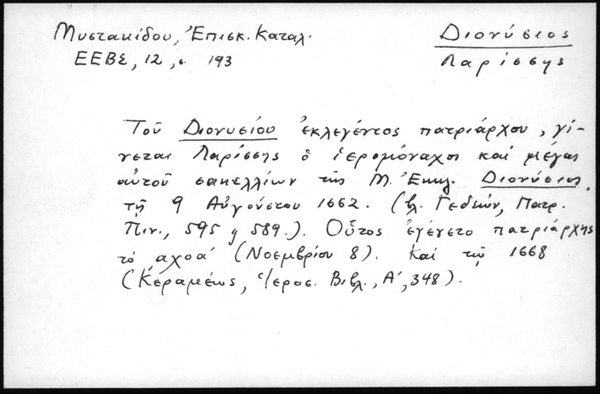 Μυστακίδου, Ἐπισκ. Καταλ.
ΕΕΒΣ, 12, σ. 193
Διονύσιος
Λαρίσσης
Τοῦ Διονυσίου ἐκλεγέντος πατριάρχου, γί-
νεται Λαρίσσης ὁ ἱερομόναχος καὶ μέγας
αὐτοῦ σακελλίων τῆς Μ. Ἐκκλ. Διονύσιος
τῇ 9 Αὐγούστου 1662. (βλ. Γεδεών, Πατρ.
Πιν., 595 καὶ 589.). Οὗτος ἐγένετο πατριάρχης
τὸ αχοα' (Νοεμβρίου 8). Καὶ τῷ 1668
(Κεραμέως, Ἱεροσ. Βιβλ., Α', 348).